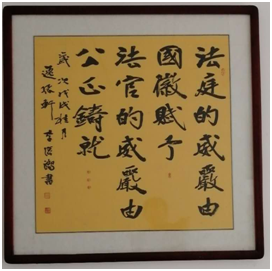 法庭的威嚴由
國徽賦予
法官的威嚴由
公正鑄就
歲次戊戌桂月
李俊
書